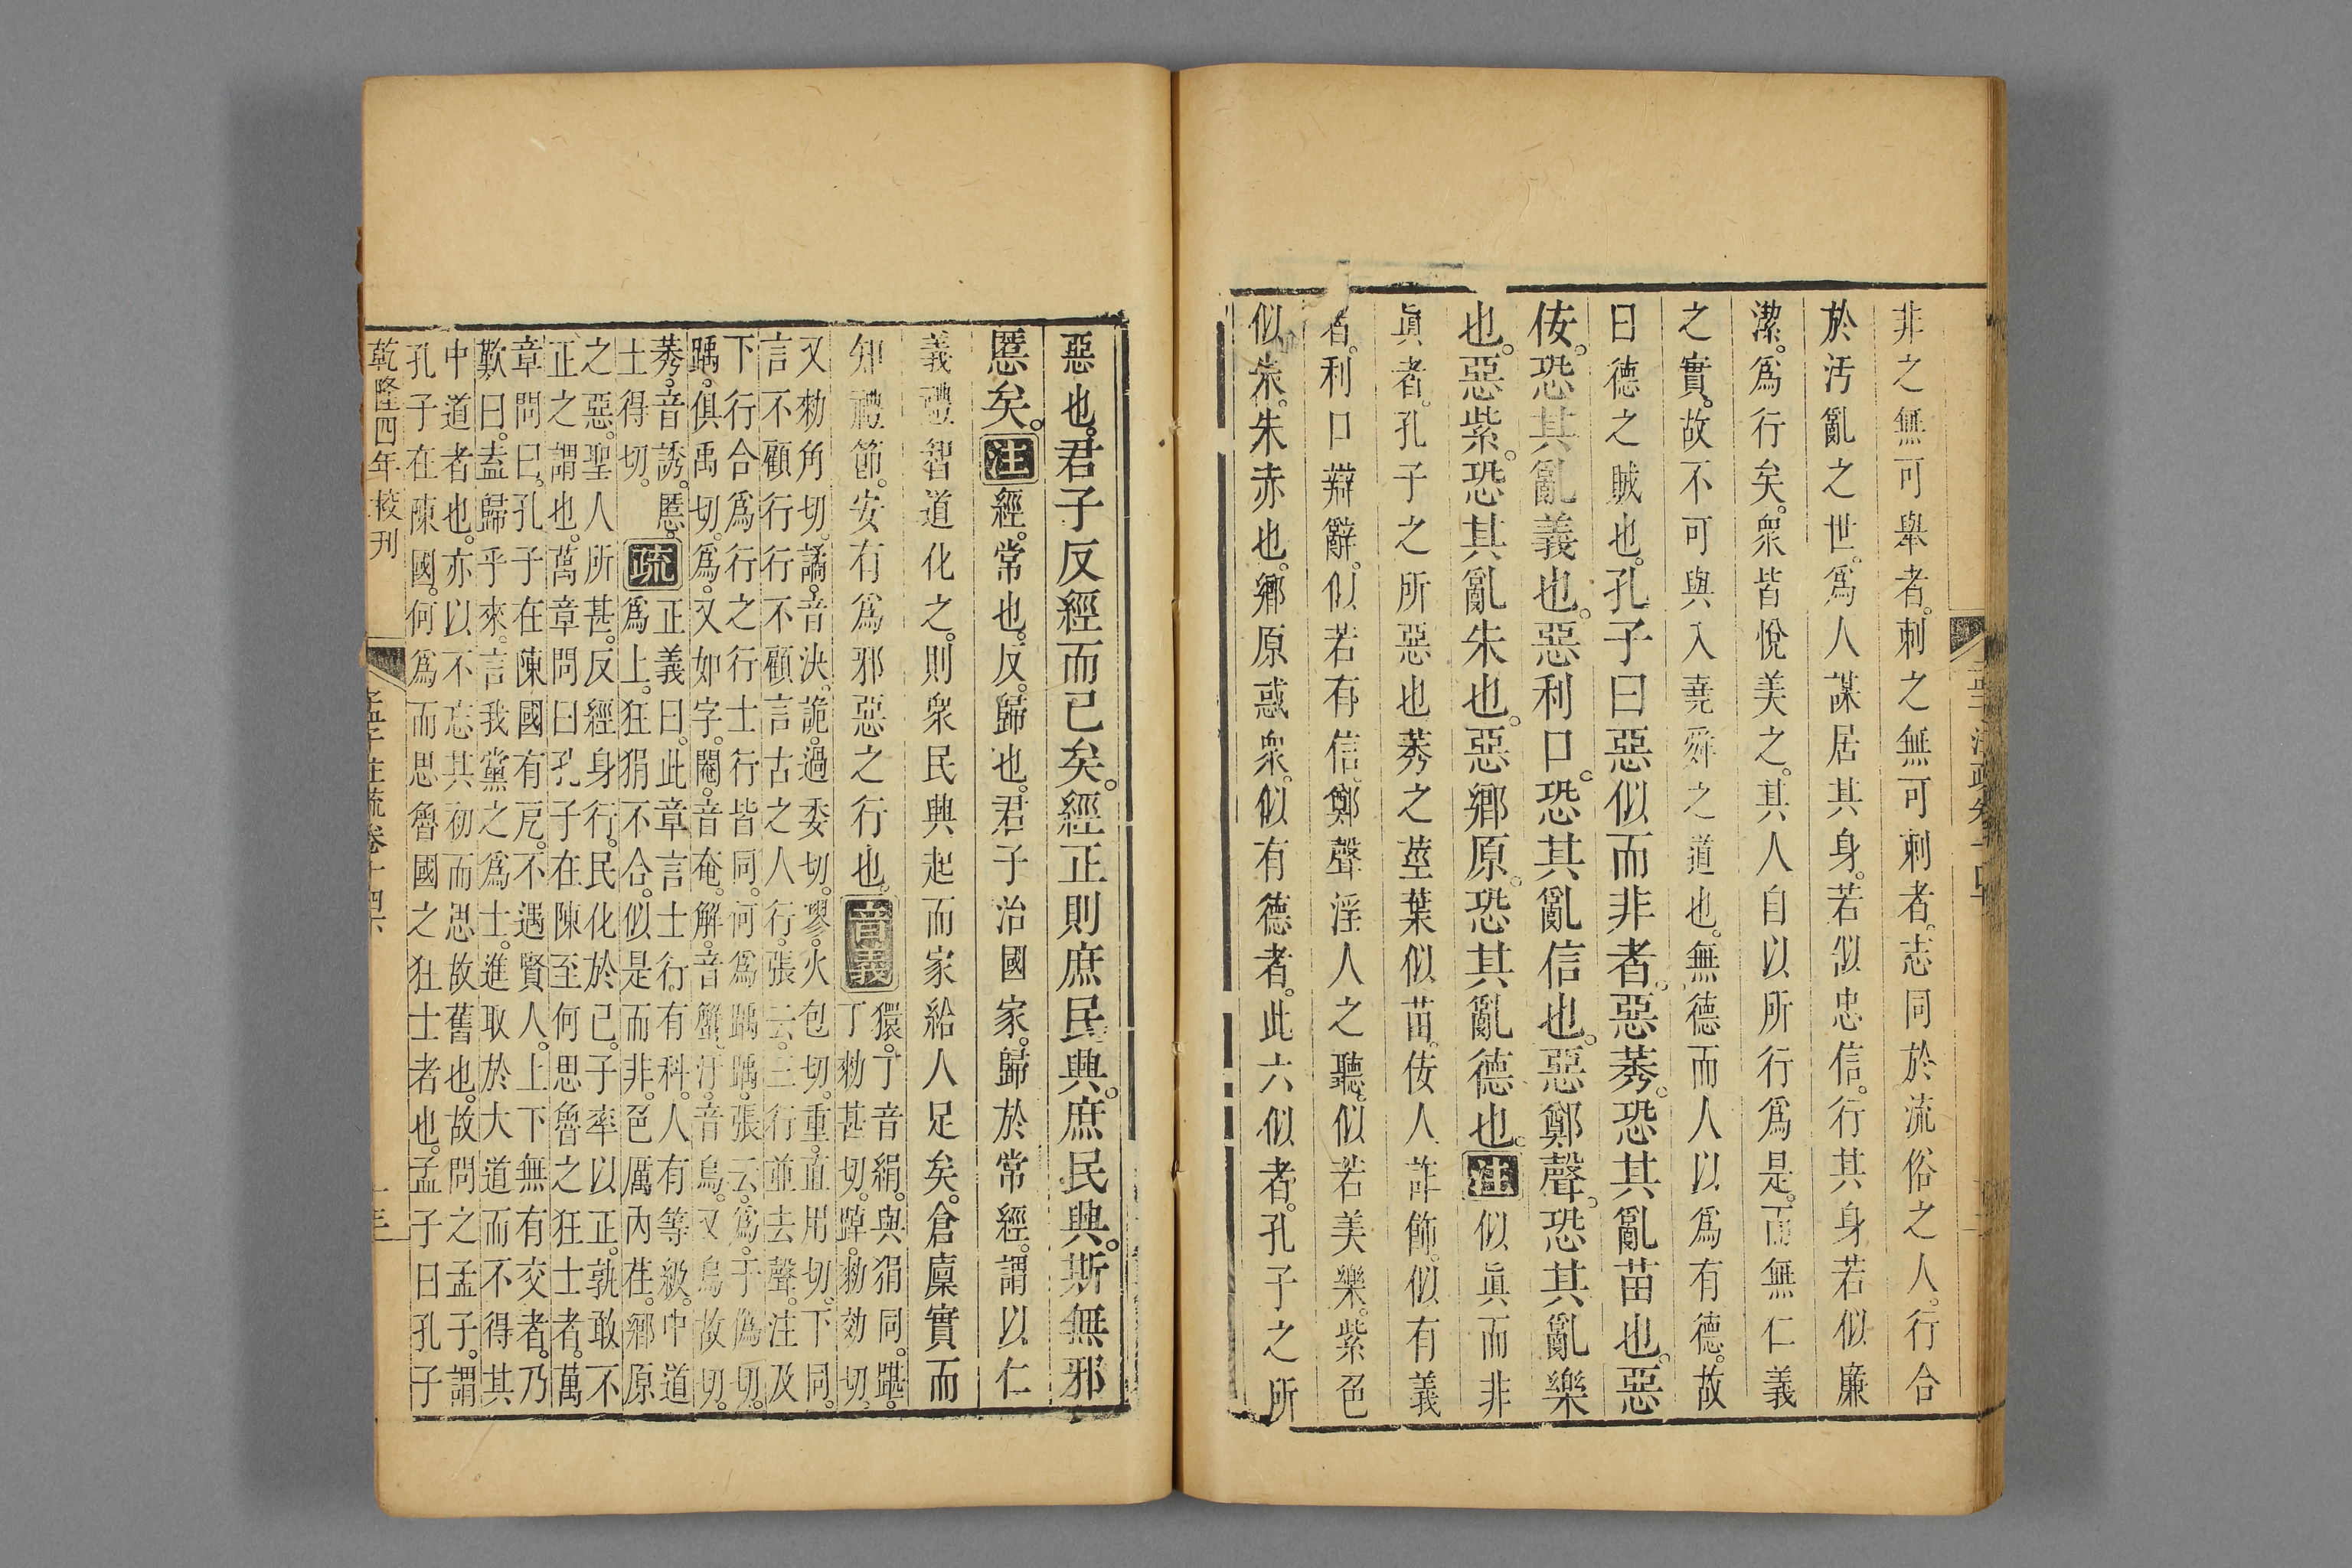 非之無可舉者。刺之無可刺者。志同於流俗之人。行合
於汚亂之世。爲人謀居其身。若似忠信。行其身若似廉
潔。爲行矣。衆皆悅美之。其人自以所行爲是。而無仁義
之實。故不可與入堯舜之道也。無德而人以爲有德。故
曰德之賊也。孔子曰惡似而非者。惡莠。恐其亂苗也。惡
佞。恐其亂義也。惡利口。恐其亂信也。惡鄭聲。恐其亂樂
也。惡紫。恐其亂朱也。惡鄉原。恐其亂德也。注似眞而非
眞者。孔子之所惡也莠之莖葉似苗。佞人詐飾。似有義
者。利口辯辭。似若有信鄭聲淫人之聽。似若美樂。紫色
似朱。朱赤也。鄉原惑衆。似有德者。此六似者。孔子之所
惡也。君子反經而已矣。經正則庶民興。庶民興。斯無邪
慝矣。注經。常也。反。歸也。君子治國家。歸於常經。謂以仁
義禮智道化之。則衆民興起而家給人足矣。倉廩實而
知禮節。安有爲邪惡之行也。音義
獧。丁音絹。與狷同。踸。
丁勑甚切。踔。勑効切。
又勑角切。譎。音決。詭。過委切。嘐。火包切。重。直用切。下同。
言不顧行行不顧言古之人行。張云。三行並去聲。注及
下行合爲行之行士行皆同。何爲踽踽。張云。爲。于僞切。
踽。俱禹切。爲。又如字。閹。音奄。解。音蟹。汙。音烏。又烏故切。
莠。音誘。慝。
土得切。
疏
正義曰。此章言士行。有科。人有等級。中道
爲上。狂狷不合。似是而非。色厲內荏。鄉原
之惡。聖人所甚。反經身行。民化於己。子率以正。孰敢不
正之謂也。萬章問曰孔子在陳至何思魯之狂士者。萬
章問曰。孔子在陳國有戹。不遇賢人。上下無有交者。乃
歎曰。盍歸乎來。言我黨之爲士。進取於大道而不得其
中道者也。亦以不忘其初而思故舊也。故問之孟子。謂
孔子在陳國。何爲而思魯國之狂士者也。孟子曰孔子
乾隆四年校刊